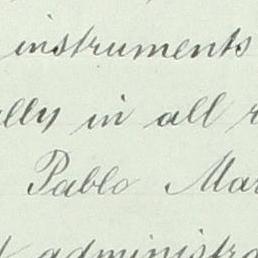 instruments
lly in all
Pablo Mar
administra